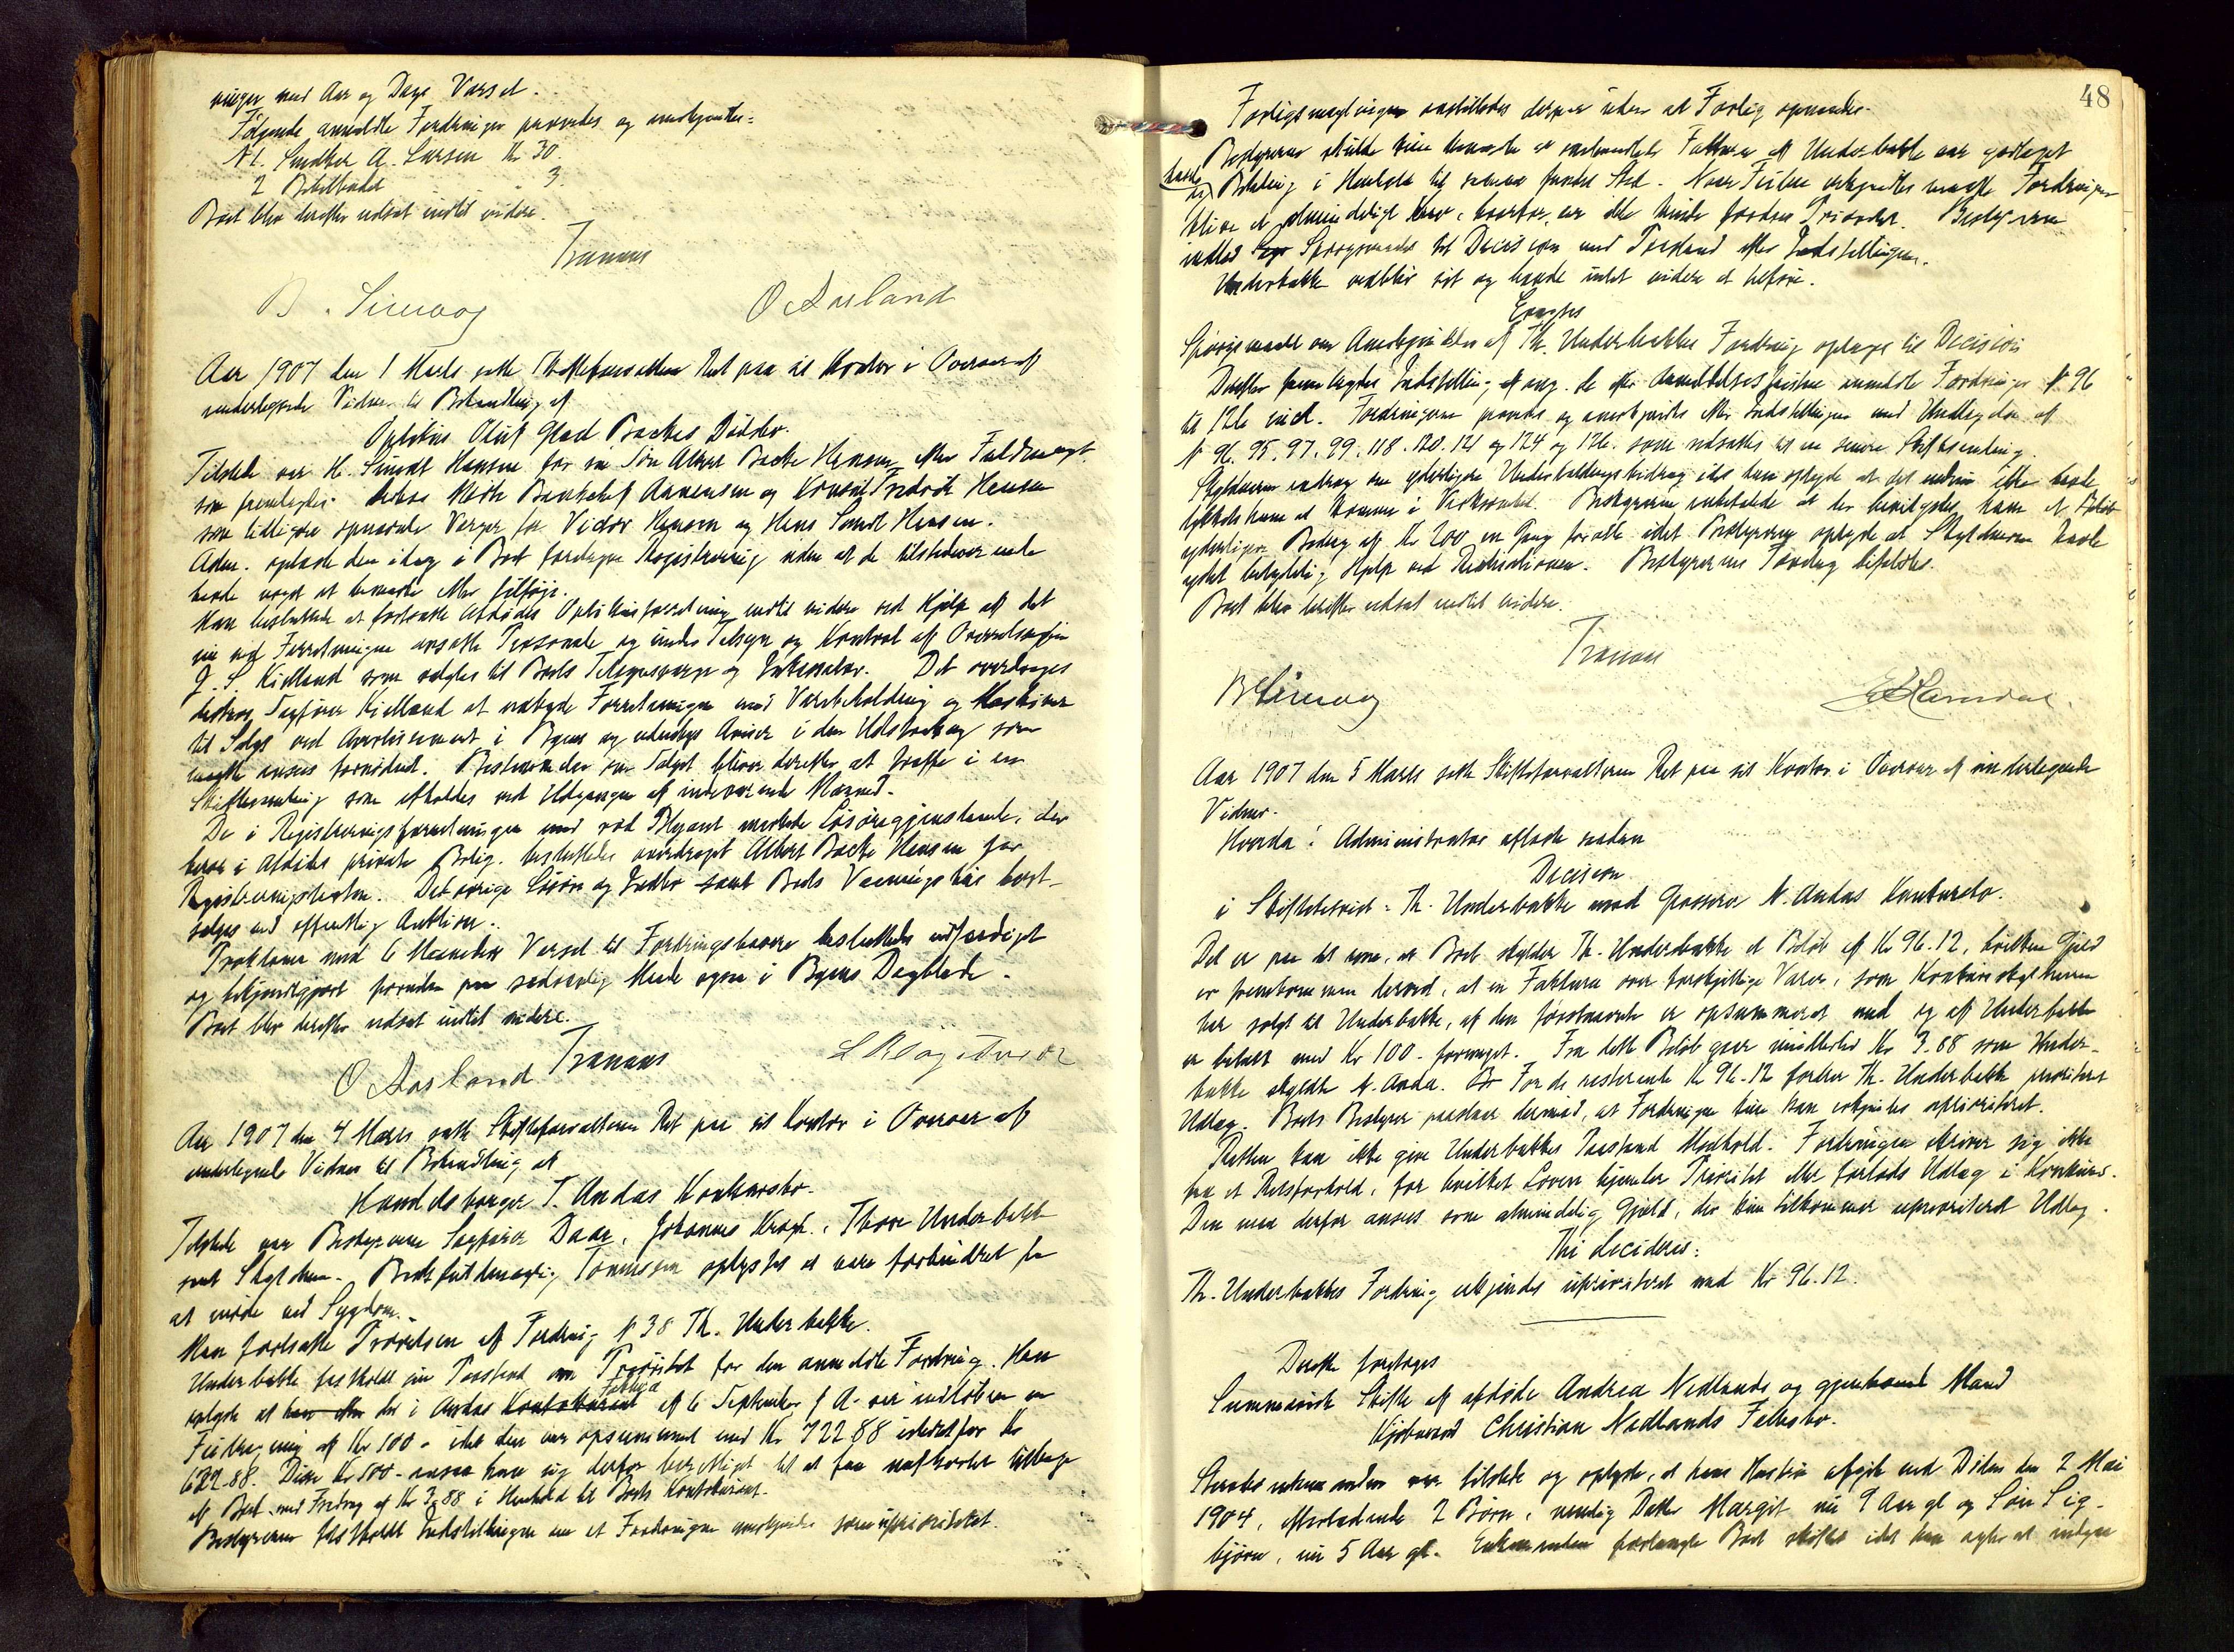 ninger med Aar og Dags Varsel.
Følgende anmeldte Fordringer prøvedes og anerkjendtes:
№ 1. Snedker A. Larsen Kr. 30.
2 Bikelbudet " 3.
Boet blev derefter udsat indtil videre.
Tranaas
B. Sirevaag O Aasland
Aar 1907 den 1 Marts satte Skifteforvalteren Ret paa sit Kontor i Overvær af
underlegnede Vidner til Behandling af
Optikus Oluf Glad Backes Dødsbo.
Tilstede var H. Smidt Hansen for sin Søn Albert Backe Hansen efter Fuldmagt
som fremlagdes. Desuden mødte Bankchef Annensen og Konsul Fredrik Hansen
som tidligere opnævnte Verger for Victor Hansen og Hans Smidt Hansen.
Adm. oplæste den idag i Boet foretagne Registrering uden at de tilstedeværende
havde noget at bemærke eller tilføje.
Man besluttede at fortsætte Afdødes Optikusforretning indtil videre ved Hjælp af det
nu ved Forretningen ansatte Personale og under Tilsyn og Kontrol af Overretssagfører
J. S. Kielland som valgtes til Boets Tilsynsverge og Inkassator. Det overdroges
desuden Sagfører Kielland at udbyde Forretningen med Varebeholdning og Maskiner
til Salgs ved Avertissement i Byens og udenbys Aviser i den Udstrækning som
maatte ansees fornødent. Bestemmelse om Salget bliver derefter at træffe i en
Skiftesamling som afholdes ved Udgangen af indeværende Maaned.
De i Registreringsforretningen med rød Blyant mærkede Løsøregjenstande, der
beror i Afdødes private Bolig, besluttedes overdraget Albert Backe Hansen for
Registreringstaxten. Det øvrige Løsøre og Indbo samt Boets Vaaningshus bort-
sælges ved offentlig Auktion.
Proklama med 6 Maaneders Varsel til Fordringshavere besluttedes udfærdiget
og bekjendtgjort foruden paa sædvanlig Maade ogsaa i Byens Dagblade.
Boet blev derefter udsat indtil videre.
O Aasland Tranaas
Aar 1907 den 4 Marts satte Skifteforvalteren Ret paa sit Kontor i Overvær af
underlegnede Vidner til Behandling af
Handelsborger T. Andas Konkursbo.
Tilstede var Bestyreren Sagfører Daae, Johannes Kroph., Thore Underbakke
samt Skyldneren. Boets fuldmægtig Tønnessen oplystes at være forhindret fra
at møde ved Sygdom.
Man fortsatte Prøvelsen af Fordring № 38 Th. Underbakke.
Underbakke fastholdt sin Paastand om Prioritet for den anmeldte Fordring. Han
oplyste at der i Andas Faktura af 6 September f. A. var indløbet en
Feilregning af Kr 100 - idet den var opsummeret med Kr. 722.88 istedetfor Kr
622.88. Disse Kr 100 - ansaa han sig derfor berettiget til at faa uafkortet tilbage
af Boet med Fradrag af Kr 3.88 i Henhold til Boets Kontokurant.
Bestyreren fastholdt Indstillingen om at Fordringen anerkjendes som uprioriteret.
48
Forligsmægling anstilledes derpaa uden at Forlig opnaades.
Bestyreren skulde kun bemærke at omhandlede Faktura af Underbakke var godtaget
havde
og Betaling i Henhold til samme fundet Sted. Naar Feilen erkjendtes maatte Fordringen
blive et almindeligt Krav, hvorfor der ikke kunde fordres Prioritet. Bestyreren
indlod Spørgsmaalet til Decision med Paastand efter Indstillingen.
Underbakke vedblev sit og havde intet videre at tilføie.
Eragtes
Spørgsmaalet om Anerkjendelse af Th. Underbakkes Fordring optages til Decision
Derefter fremlagdes Indstilling af ang. de efter Anmeldelsesfristen anmeldte Fordringer № 96
til 126 incl. Fordringerne prøvedes og anerkjendtes efter Indstillingen med Undtagelse af
№ 96. 95. 97. 99. 118. 120. 121 og 124 og 126. som udsattes til en senere Skiftesamling.
Skyldneren androg om yderligere Underholdningsbidrag idet han oplyste at det endnu ikke havde
lykkedes ham at komme i Virksomhed. Bestyreren anbefalede at der bevilgedes ham et Beløb
yderligere Bidrag af Kr 200 en Gang for alle idet Bestyreren oplyste at Skyldneren havde
ydet betydelig Hjælp ved Realisationen. Bestyrerens Forslag bifaldtes.
Boet blev derefter udsat indtil videre.
Tranaas
B Sirevaag
Aar 1907 den 5 Marts satte Skifteforvalteren Ret paa sit Kontor i Overvær af underlegnede
Vidner.
Hvorda: Administrator aflæste saadan
Decision
i Skiftetvist: Th. Underbakke mod Grosserer N. Andas Konkursbo.
Det er paa det rene, at Boet skylder Th. Underbakke et Beløb af Kr 96.12, hvilken Gjæld
er fremkommen derved, at en Faktura over forskjellige Varer, som Konkursskyldneren
har solgt til Underbakke, af den førstnævnte er opsummeret med og af Underbakke
er betalt med Kr 100 - formeget. Fra dette Beløb gaar imidlertid Kr 3.88 som Under-
bakke skyldte N. Anda. For de resterende Kr 96.12 fordrer Th. Underbakke prioriteret
Udlæg. Boets Bestyrer paastaar dermod, at Fordringen kun kan erkjendes uprioriteret.
Retten kan ikke give Underbakkes Paastand Medhold. Fordringen skriver sig ikke
fra et Retsforhold, for hvilket Loven hjemler Prioritet eller forlods Udlæg i Konkurs.
Den maa derfor ansees som almindelig Gjæld, der kun tilkommer uprioriteret Udlæg.
Thi decideres:
Th. Underbakkes Fordring erkjendes uprioriteret med Kr 96.12.
Derefter foretoges
Summarisk Skifte af afdøde Andrea Nedlands og gjenlevende Mand
Kjøbmand Christian Nedlands Fællesbo.
Enkemanden var tilstede og oplyste, at hans Hustru afgik ved Døden den 2 Mai
1904, efterladende 2 Børn, nemlig Datter Margit nu 9 Aar gl og Søn Sig-
bjørn, nu 5 Aar gl. Enkemanden forlangte Boet skiftet idet han agter at indgaa